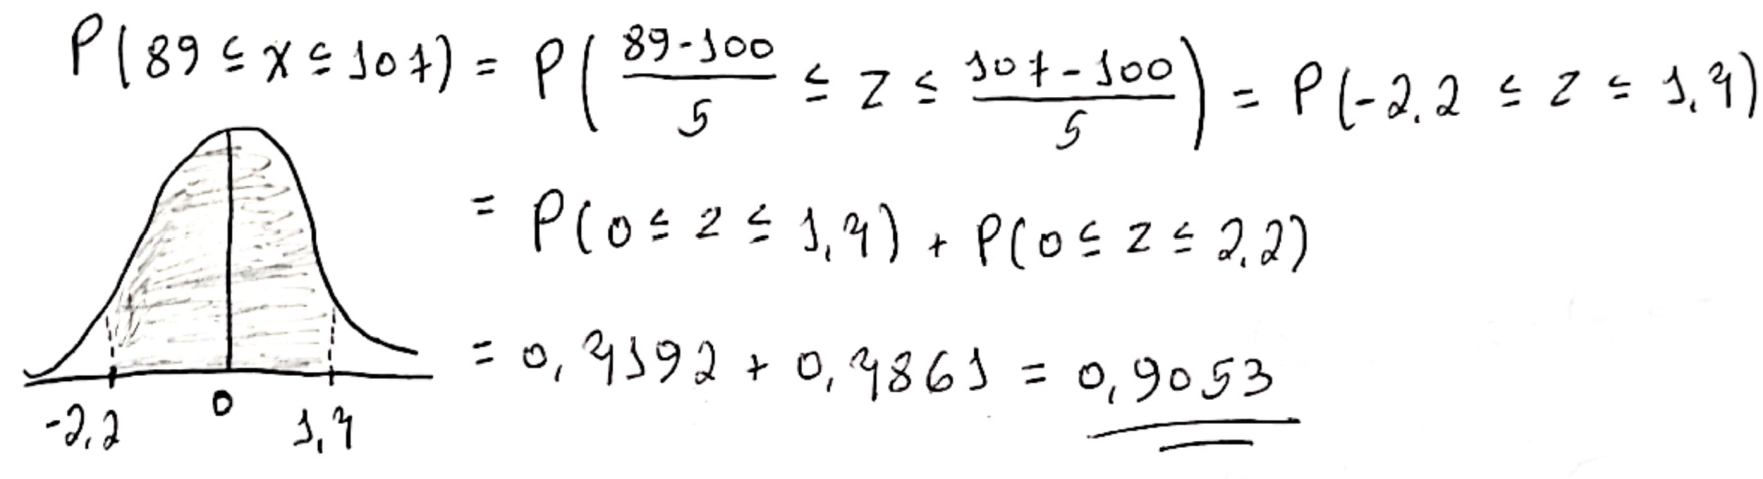 P(89 ≤ x ≤ 107) = P( (89-100)/5 ≤ z ≤ (107-100)/5 ) = P(-2,2 ≤ z ≤ 1,4)
= P(0 ≤ z ≤ 1,4) + P(0 ≤ z ≤ 2,2)
= 0,4192 + 0,4861 = 0,9053
-2,2 0 1,4